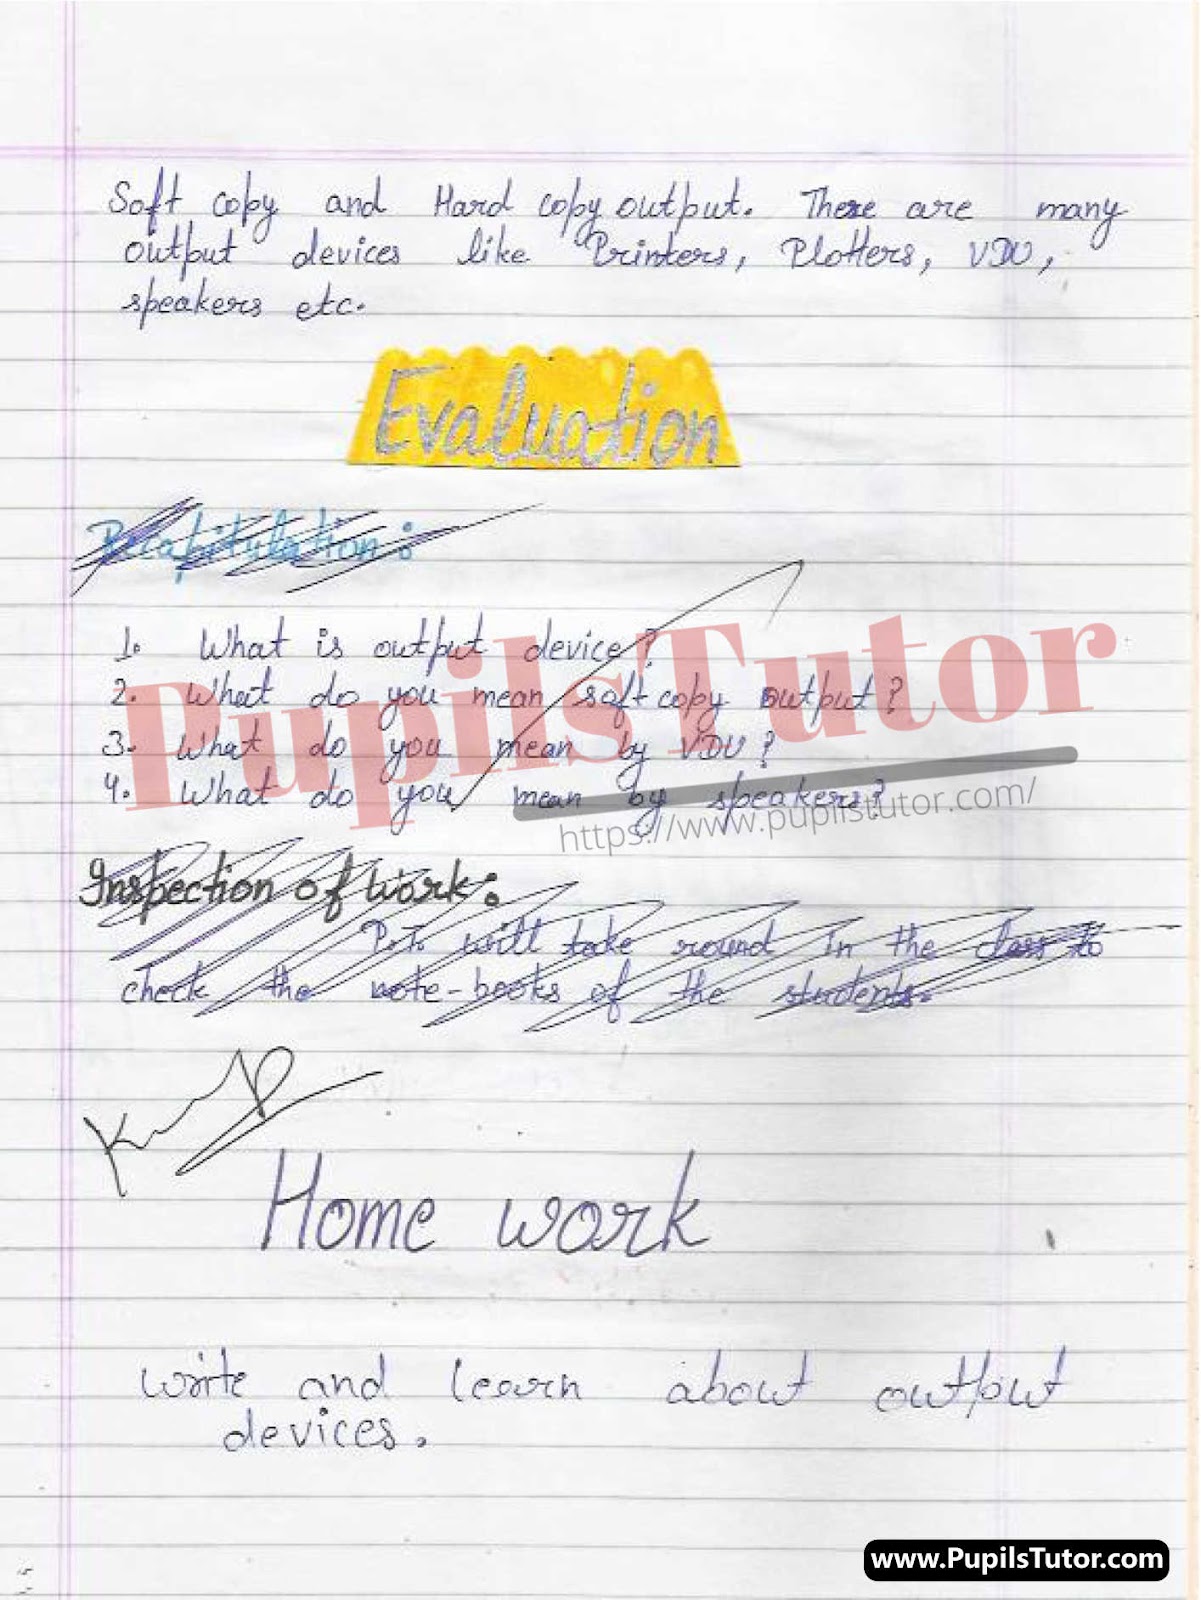 Soft copy and Hard copy output. There are many
output devices like Printers, Plotters, VDU,
speakers etc.
Evaluation
Recapitulation:
1. What is output device?
2. What do you mean soft copy output?
3. What do you mean by VDU?
4. What do you mean by speakers?
PupilsTutor
https://www.pupilstutor.com/
Inspection of work:
P.T. will take round in the class to
check the note-books of the students.
Home work
write and learn about output
devices.
www.PupilsTutor.com